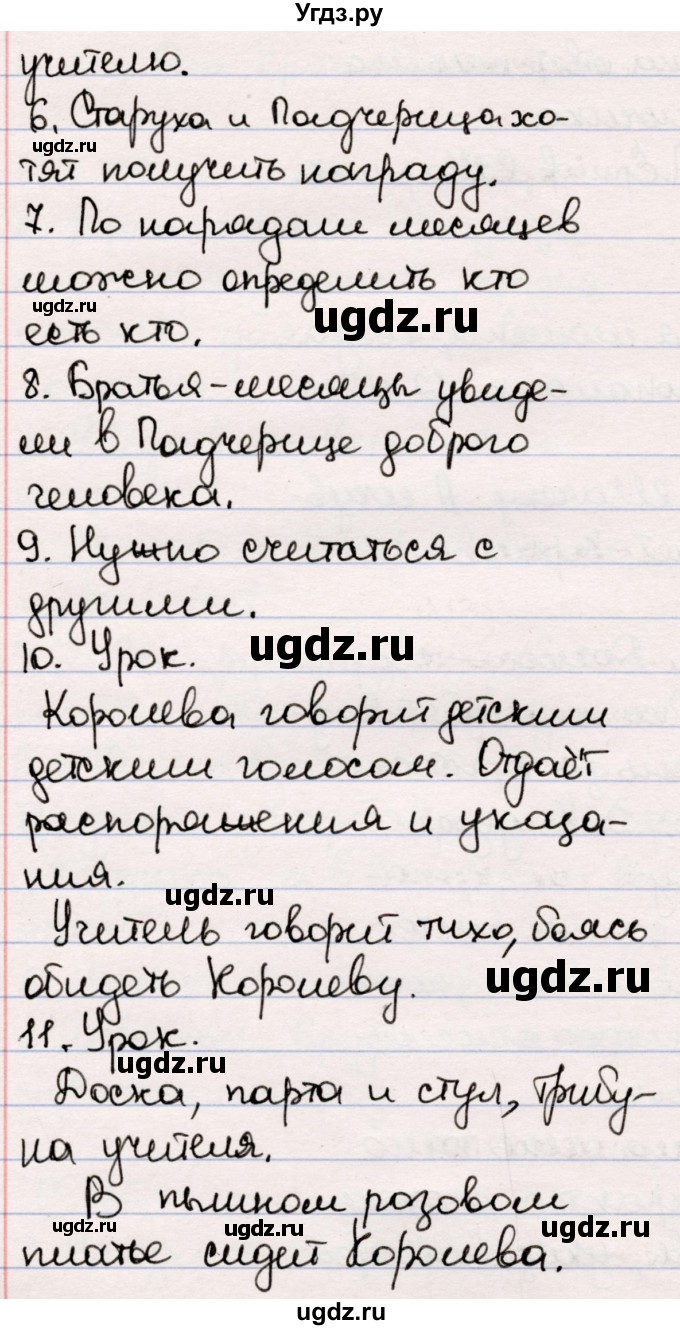 Угдз.ру
учителю.
6. Старуха и Падчерица хо-
ugdz.ru
тят получить награду.
7. По нарядам месяцев
можно определить кто
ugdz.ru
ugdz.ru
есть кто.
8. Братья-месяцы увиде-
ли в Падчерице доброго
человека.
9. Нужно считаться с
другими.
ugdz.ru
10. Урок.
Королева говорит детским
детским голосом. Отдаёт
распоряжения и указа-
ния.
ugdz.ru
Учитель говорит тихо, боясь
обидеть Королеву.
ugdz.ru
11. Урок.
ugdz.ru
Доска, парта и стул, трибу-
на учителя.
В пышном розовом
ugdz.ru
ugdz.ru
ugdz.ru
платье сидит Королева.
ugdz.ru